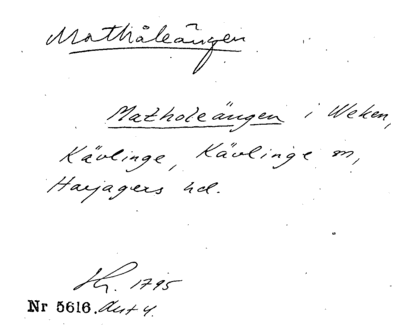 Mathåleängen
Matholeängen i Weken,
Kävlinge, Kävlinge sn,
Harjagers hd.
Nr 5616. Akt 4.
1795